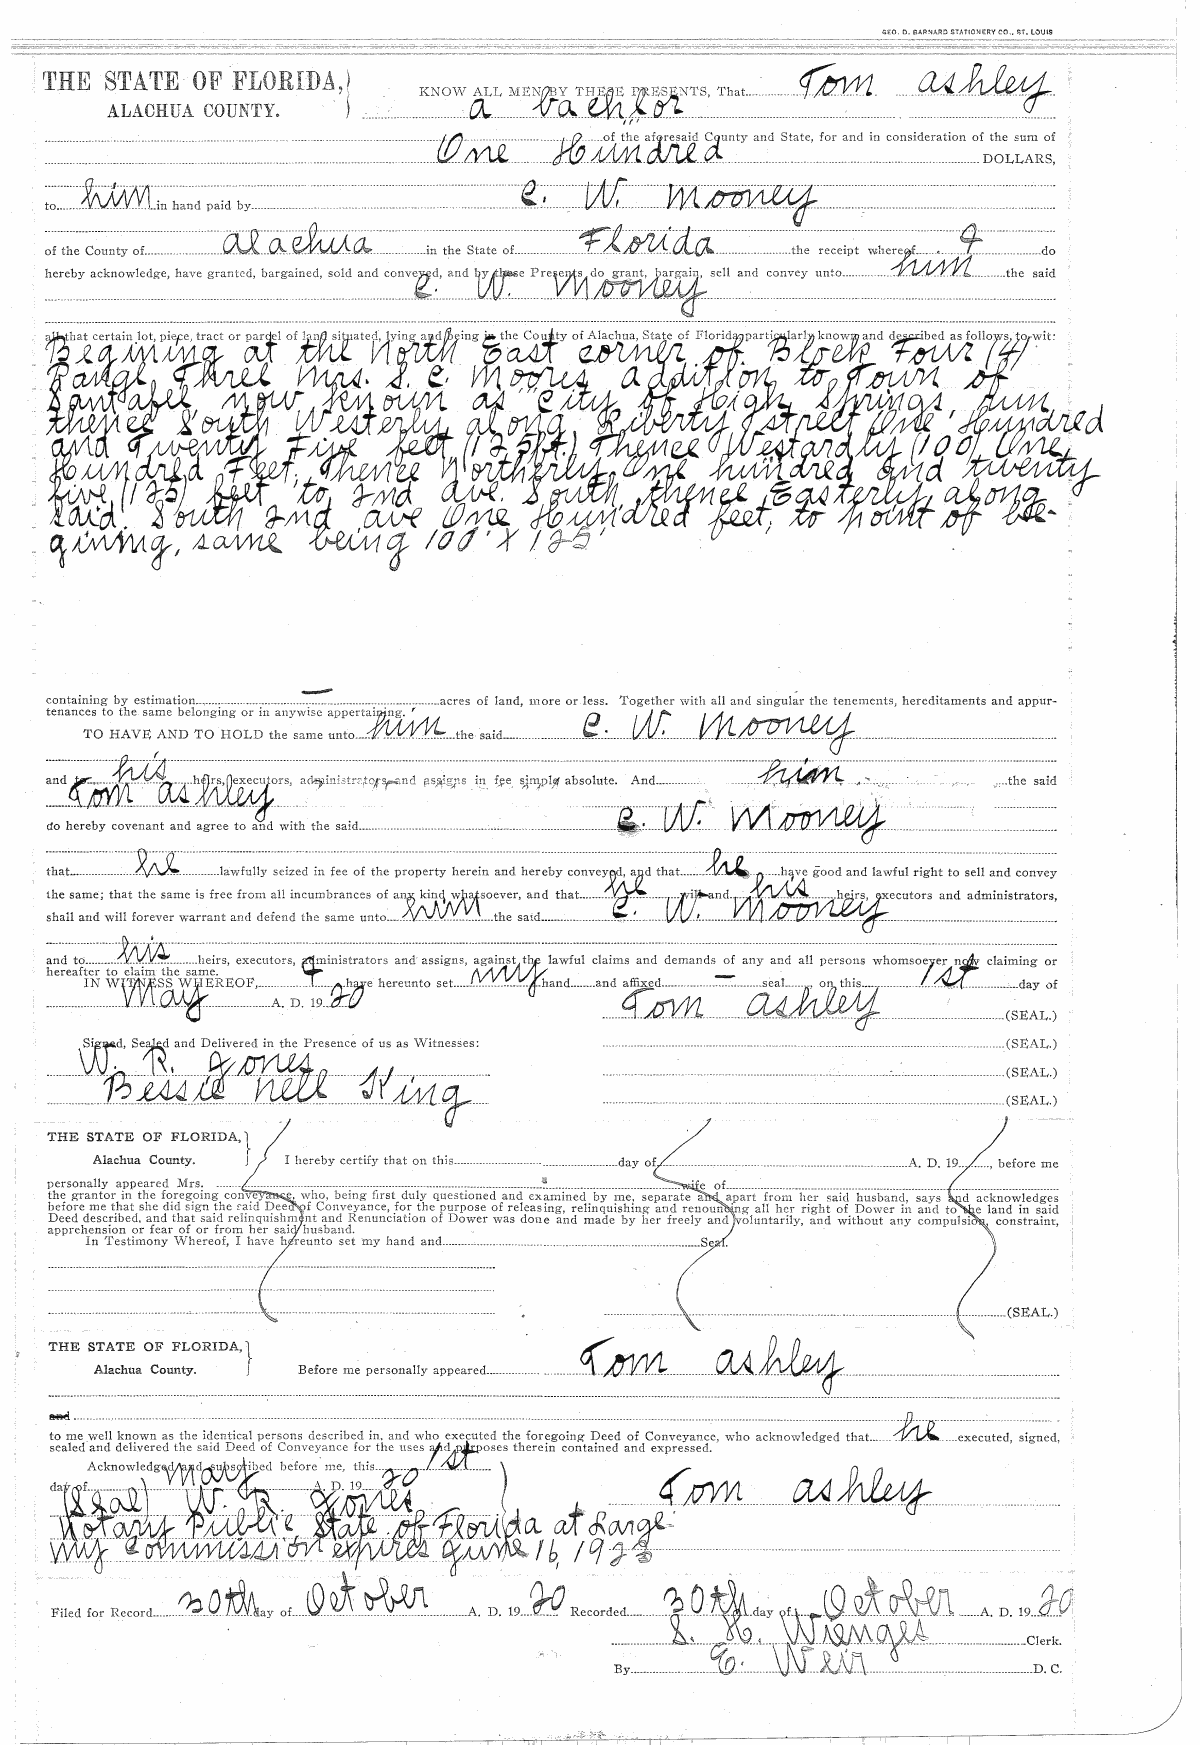 GEO. D. BARNARD STATIONERY CO., ST. LOUIS
THE STATE OF FLORIDA,
ALACHUA COUNTY.
KNOW ALL MEN BY THESE PRESENTS, That Tom Ashley
a bachlor
of the aforesaid County and State, for and in consideration of the sum of
One Hundred DOLLARS,
to him in hand paid by C. W. Mooney
of the County of Alachua in the State of Florida the receipt whereof I do
hereby acknowledge, have granted, bargained, sold and conveyed, and by these Presents do grant, bargain, sell and convey unto him the said
C. W. Mooney
all that certain lot, piece, tract or parcel of land situated, lying and being in the County of Alachua, State of Florida, particularly known and described as follows, to wit:
Begining at the North East corner of Block Four (4)
Range Three Mrs. S. C. Moores addition to Town of
Santafee now known as City of High Springs, run
thence South Westerly along Liberty Street One Hundred
and Twenty Five feet (125ft.) Thence Westardly (100) One
Hundred Feet, Thence Northerly One hundred and twenty
five (125) feet to 2nd ave. South, thence Easterly along
said South 2nd ave One Hundred feet, to point of be-
gining, same being 100' X 125'
containing by estimation — acres of land, more or less. Together with all and singular the tenements, hereditaments and appur-
tenances to the same belonging or in anywise appertaining.
TO HAVE AND TO HOLD the same unto him the said C. W. Mooney
and to his heirs, executors, administrators and assigns in fee simple absolute. And him the said
Tom Ashley
do hereby covenant and agree to and with the said C. W. Mooney
that he lawfully seized in fee of the property herein and hereby conveyed, and that he have good and lawful right to sell and convey
the same; that the same is free from all incumbrances of any kind whatsoever, and that he will and his heirs, executors and administrators,
shall and will forever warrant and defend the same unto him the said C. W. Mooney
and to his heirs, executors, administrators and assigns, against the lawful claims and demands of any and all persons whomsoever now claiming or
hereafter to claim the same.
IN WITNESS WHEREOF, I have hereunto set my hand and affixed — seal on this 1st day of
May A. D. 1920 Tom Ashley (SEAL.)
Signed, Sealed and Delivered in the Presence of us as Witnesses: (SEAL.)
W. R. Jones (SEAL.)
Bessie Nell King (SEAL.)
THE STATE OF FLORIDA,
Alachua County. I hereby certify that on this day of A. D. 19 , before me
personally appeared Mrs. wife of
the grantor in the foregoing conveyance, who, being first duly questioned and examined by me, separate and apart from her said husband, says and acknowledges
before me that she did sign the said Deed of Conveyance, for the purpose of releasing, relinquishing and renouncing all her right of Dower in and to the land in said
Deed described, and that said relinquishment and Renunciation of Dower was done and made by her freely and voluntarily, and without any compulsion, constraint,
apprehension or fear of or from her said husband.
In Testimony Whereof, I have hereunto set my hand and Seal.
(SEAL.)
THE STATE OF FLORIDA,
Alachua County. Before me personally appeared Tom Ashley
and
to me well known as the identical persons described in, and who executed the foregoing Deed of Conveyance, who acknowledged that he executed, signed,
sealed and delivered the said Deed of Conveyance for the uses and purposes therein contained and expressed.
Acknowledged and subscribed before me, this 1st
day of May A. D. 1920
(Seal) W. R. Jones Tom Ashley
Notary Public, State of Florida at Large
My Commission expires June 16, 1923
Filed for Record 30th day of October A. D. 1920 Recorded 30th day of October A. D. 1920
S. H. Wienges Clerk.
By E. Weir D. C.